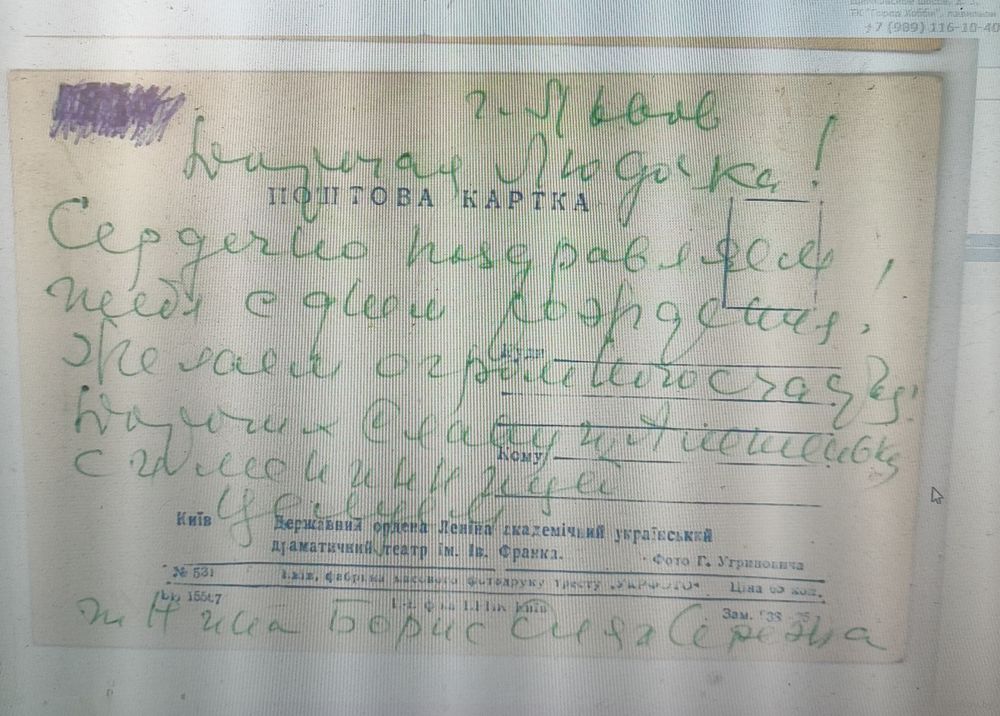 +7 (989) 116-10-40
г. Львов
Дорогая Людочка!
ПОШТОВА КАРТКА
Сердечно поздравляем,
тебя с днем рождения,
Желаем огромного счастья!
Куди
Дорогих Славу и
Кому
с
Целуем
Київ
Державний ордена Леніна академічний український
драматичний театр ім. Ів. Франка.
Фото Г. Угриновича
№ 531
Київ, фабрика масового фотодруку тресту „УКРФОТО“
Ціна 65 коп.
Зам.
т Нина Борис Сережа